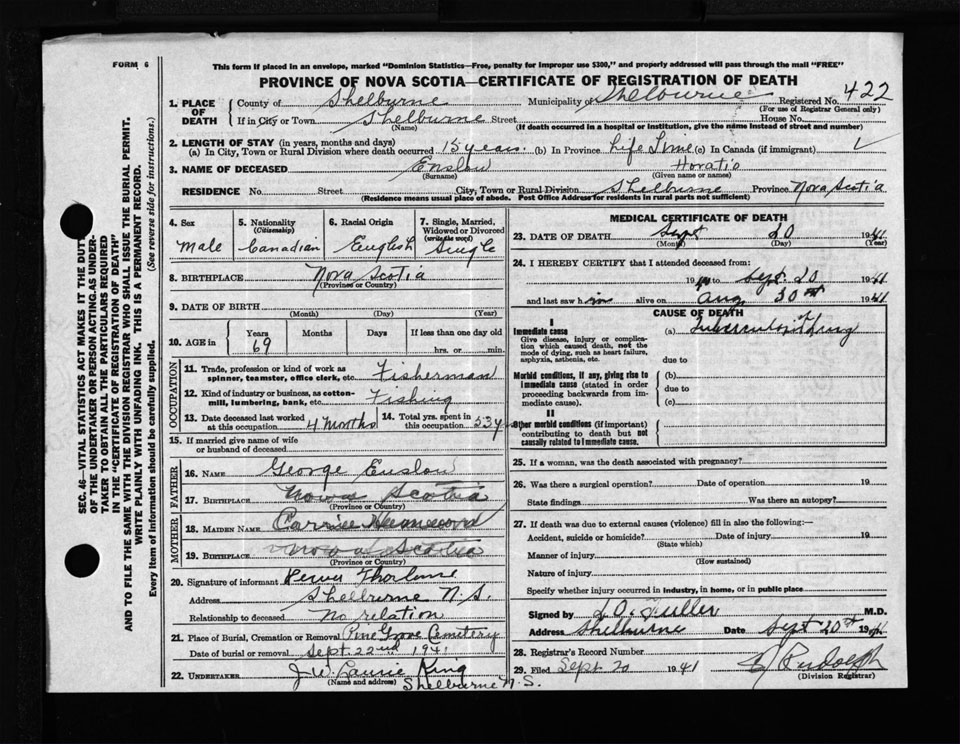 FORM 6
This form if placed in an envelope, marked "Dominion Statistics—Free, penalty for improper use $300," and properly addressed will pass through the mail "FREE"
PROVINCE OF NOVA SCOTIA—CERTIFICATE OF REGISTRATION OF DEATH
1. PLACE OF DEATH County of Shelburne Municipality of Shelbourne Registered No. 422
(For use of Registrar General only)
If in City or Town Shelburne Street House No.
(Name) (If death occurred in a hospital or institution, give the name instead of street and number)
2. LENGTH OF STAY (in years, months and days)
(a) In City, Town or Rural Division where death occurred 15 years (b) In Province Life Time (c) In Canada (if immigrant)
3. NAME OF DECEASED Enslow Horatio
(Surname) (Given name or names)
RESIDENCE No. Street City, Town or Rural Division Shelburne Province Nova Scotia
(Residence means usual place of abode. Post Office Address for residents in rural parts not sufficient)
4. Sex Male
5. Nationality (Citizenship) Canadian
6. Racial Origin English
7. Single, Married, Widowed or Divorced (write the word) Single
8. BIRTHPLACE Nova Scotia
(Province or Country)
9. DATE OF BIRTH
(Month) (Day) (Year)
10. AGE in Years Months Days If less than one day old
69 hrs. or min.
OCCUPATION
11. Trade, profession or kind of work as spinner, teamster, office clerk, etc. Fisherman
12. Kind of industry or business, as cotton-mill, lumbering, bank, etc. Fishing
13. Date deceased last worked at this occupation 4 months
14. Total yrs. spent in this occupation 53 y
15. If married give name of wife or husband of deceased
FATHER
16. NAME George Enslow
17. BIRTHPLACE Nova Scotia
(Province or Country)
MOTHER
18. MAIDEN NAME Carrie
19. BIRTHPLACE Nova Scotia
(Province or Country)
20. Signature of informant
Address Shelburne N.S.
Relationship to deceased No relation
21. Place of Burial, Cremation or Removal Pine Grove Cemetery
Date of burial or removal Sept. 22nd 1941
22. UNDERTAKER J. W. Laurie King
(Name and address) Shelburne N.S.
MEDICAL CERTIFICATE OF DEATH
23. DATE OF DEATH Sept 20 1941
(Month) (Day) (Year)
24. I HEREBY CERTIFY that I attended deceased from:
19 to Sept. 20 1941
and last saw him alive on Aug 30th 1941
CAUSE OF DEATH
I
Immediate cause (a)
Give disease, injury or complication which caused death, not the mode of dying, such as heart failure, asphyxia, asthenia, etc.
due to
Morbid conditions, if any, giving rise to immediate cause (stated in order proceeding backwards from immediate cause).
(b)
due to
(c)
II
Other morbid conditions (if important) contributing to death but not causally related to immediate cause.
25. If a woman, was the death associated with pregnancy?
26. Was there a surgical operation? Date of operation 19
State findings Was there an autopsy?
27. If death was due to external causes (violence) fill in also the following:—
Accident, suicide or homicide? Date of injury 19
(State which)
Manner of injury
(How sustained)
Nature of injury
Specify whether injury occurred in industry, in home, or in public place
Signed by L. O. Fuller M.D.
Address Shelburne Date Sept 20th 1941
28. Registrar's Record Number
29. Filed Sept 20 1941 Rudolph
(Division Registrar)
SEC. 46—VITAL STATISTICS ACT MAKES IT THE DUTY
OF THE UNDERTAKER OR PERSON ACTING AS UNDER-
TAKER TO OBTAIN ALL THE PARTICULARS REQUIRED
IN THE "CERTIFICATE OF REGISTRATION OF DEATH"
AND TO FILE THE SAME WITH THE DIVISION REGISTRAR WHO SHALL ISSUE THE BURIAL PERMIT.
WRITE PLAINLY WITH UNFADING INK. THIS IS A PERMANENT RECORD.
Every item of information should be carefully supplied. (See reverse side for instructions.)